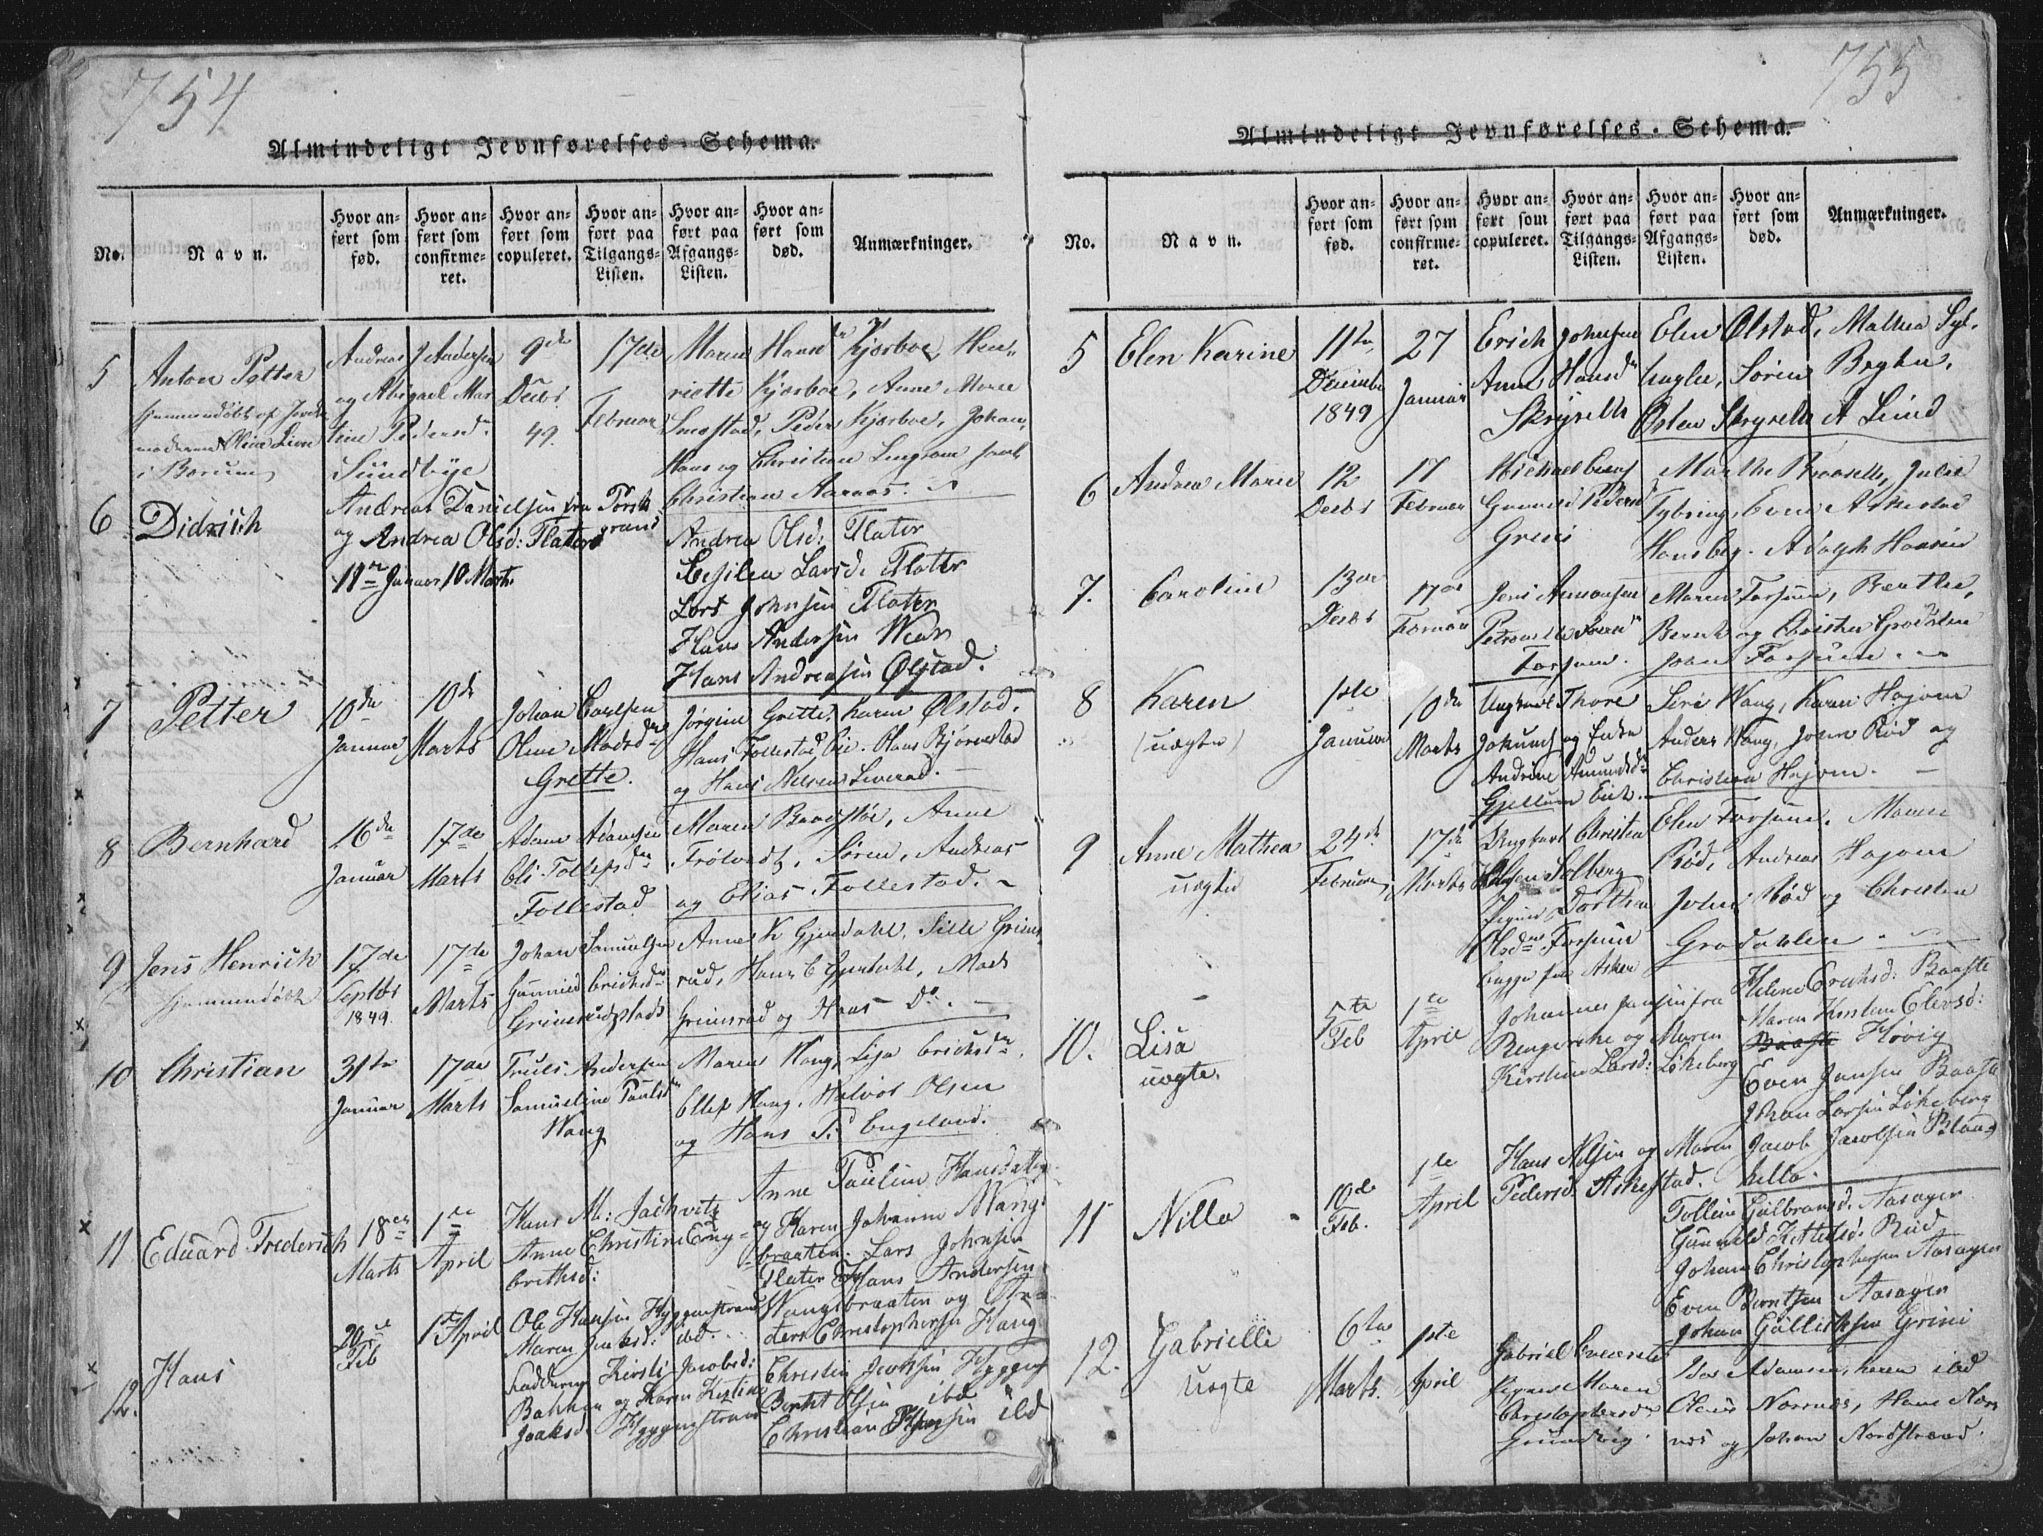 754
Almindeligt Jevnførelses-Schema.
No.
Navn.
Hvor anført som fød.
Hvor anført som confirmeret.
Hvor anført som copuleret.
Hvor anført paa Tilgangs-Listen.
Hvor anført paa Afgangs-Listen.
Hvor anført som død.
Anmærkninger.
5 Anton Petter
hjemmedøbt af Jorde
moderen
i Bærum
Andreas J Andersen
og Abigael Mar
tine Pedersdr
Sundbye
9de
Decbr
49.
17de
Februar
Maren Hansdr Kjørboe, Hen
riette Kjørboe, Anne Marie
Smestad, Peder Kjørboe, Johan
Hans og Christian
Christian Aarnæs.
6 Didrich
Andreas Danielsen fra Porss
grund
og Andrea Olsd: Flater
11te Januar 10 Marts
Andrea Olsd: Flater
Larsd: Flater
Lars Johnsen Flater
Hans Andersen
Hans Andreasen Ølstad.
7 Petter
10de
Januar
10de
Marts
Johan Carlsen
Oline Madsdr
Grette.
Jørgine Grette, Karen Ølstad,
Hans Follestad, Eie. Hans Bjørnstad
og Hans Nielsen Leverad.
8 Bernhard
16de
Januar
17de
Marts
Adam Adamsen
Eli Tollefsdr
Follestad
Maren Baadstøe, Anne
Frøtvedt, Søren, Andreas
og Elias Follestad.
9 Jens Henrich
hjemmedøbt
17de
Septbr
1849.
17de
Marts
Johan Samuelsen
Gunnild Erichsdr
Grimsrudplads
Anne K Gjerdahl, Sille Grims
rud, Hans C Gjerdahl, Mads
Grimsrud og Hans Do.
10 Christian
31te
Januar
17de
Marts
Truls Andersen
Samueline Paulsdr
Haug
Maren Haug, Lisa Erichsdr,
Ellef Haug, Halvor Olsen
og Hans P. Engeland.
11 Eduard Frederich
18de
Marts
1ste
April
Hans M:
Anne Christine Eng
brethsd:
Anne Pauline Hansdatter
og Karen Johanne Haugs
braaten. Lars Johnsen
Flater Hans Andersen
Haugsbraaten og An
ders Christophersen Haug
12. Hans
20de
Feb
1ste April
Ole Hansen Hyggenstrand
Maren ibd.
Fadderne Kirsti Jacobsd:
Bakken og Karen Kirstine
Hyggenstrand
Christen Jacobsen Hyggen
Bernt Olsen ibd
Christian ibd
755
Almindeligt Jevnførelses-Schema.
No.
Navn.
Hvor anført som fød.
Hvor anført som confirmeret.
Hvor anført som copuleret.
Hvor anført paa Tilgangs-Listen.
Hvor anført paa Afgangs-Listen.
Hvor anført som død.
Anmærkninger.
5 Elen Karine
11te
Decembr
1849
27
Januar
Erich Johnsen
Anne Hansdr
Skryseth
Elen Ølstad, Mathea Syl
ling, Søren Bryhn,
Østen Skryseth A Lund
6 Andrea Marie
12
Decbr
17
Februar
Michael
Gunnild Pedersdr
Greni
Marthe Braaseth, Julie
Tybring, Even Askestad
Hans Adolph Hansen
7. Caroline
13de
Decbr
17de
Februar
Jens Amonsen
Petronelle
Forsum.
Maren Forsum, Berthe,
Bernt og Christen Grodalen
John Forsum.
8 Karen
(uægte)
1ste
Januar
10de
Marts
Ungkarl Thore
Jokums og Enke
Andrine Amundsdr
Gjellum Eiet.
Siri Haug, Karen Hajom
Anders Haug, John Rød og
Christian Hajom.
9 Anne Mathea
uægte
24de
Februar
17de
Marts
Ungkarl Christen
Solberg
Pigen Dorthea
Olsdr Forsum
begge fra Asker
Elen Forsum, Maren
Rød, Andreas Hajom
John Rød og Christen
Grodahlen.
10. Lisa
uægte.
5te
Feb
1ste
April
Johannes Jansen fra
Ringerike og Maren
Kirstine Larsd: Lökeberg
Helene Erichsd: Baaste
Maren Kirstine Elevsd:
Baaste Høvig
Even Jansen Baaste
Johan Larsen Lökeberg
Jacob Jacobsen Blaas
hella.
11 Nilla
10de
Feb.
1ste
April
Hans Nilsen og Maren
Pedersd: Askestad.
Tolline Gulbrandsd. Aasagen
Gunnild Kittelsd: Rud
Johan Christophersen Aasagen
Even Berntsen Aasagen
Johan Gullichsen Grini
12. Gabrielle
Uægte
6te
Marts.
1ste
April
Gabriel
Pigen Maren
Christophersdr
Grundvig
Adamsen, Karen ibd
Claus Nærsnæs, Hans Nærs
næs og Johan Nordstrand.